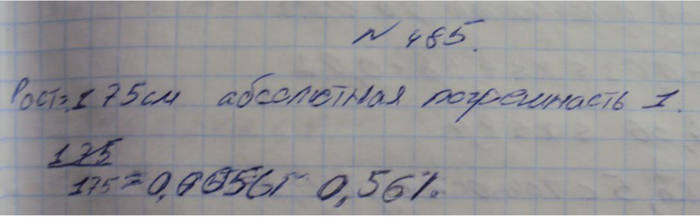 № 485.
Рост=175см абсолютная погрешность 1.
175
175=0,00561 0,56%.